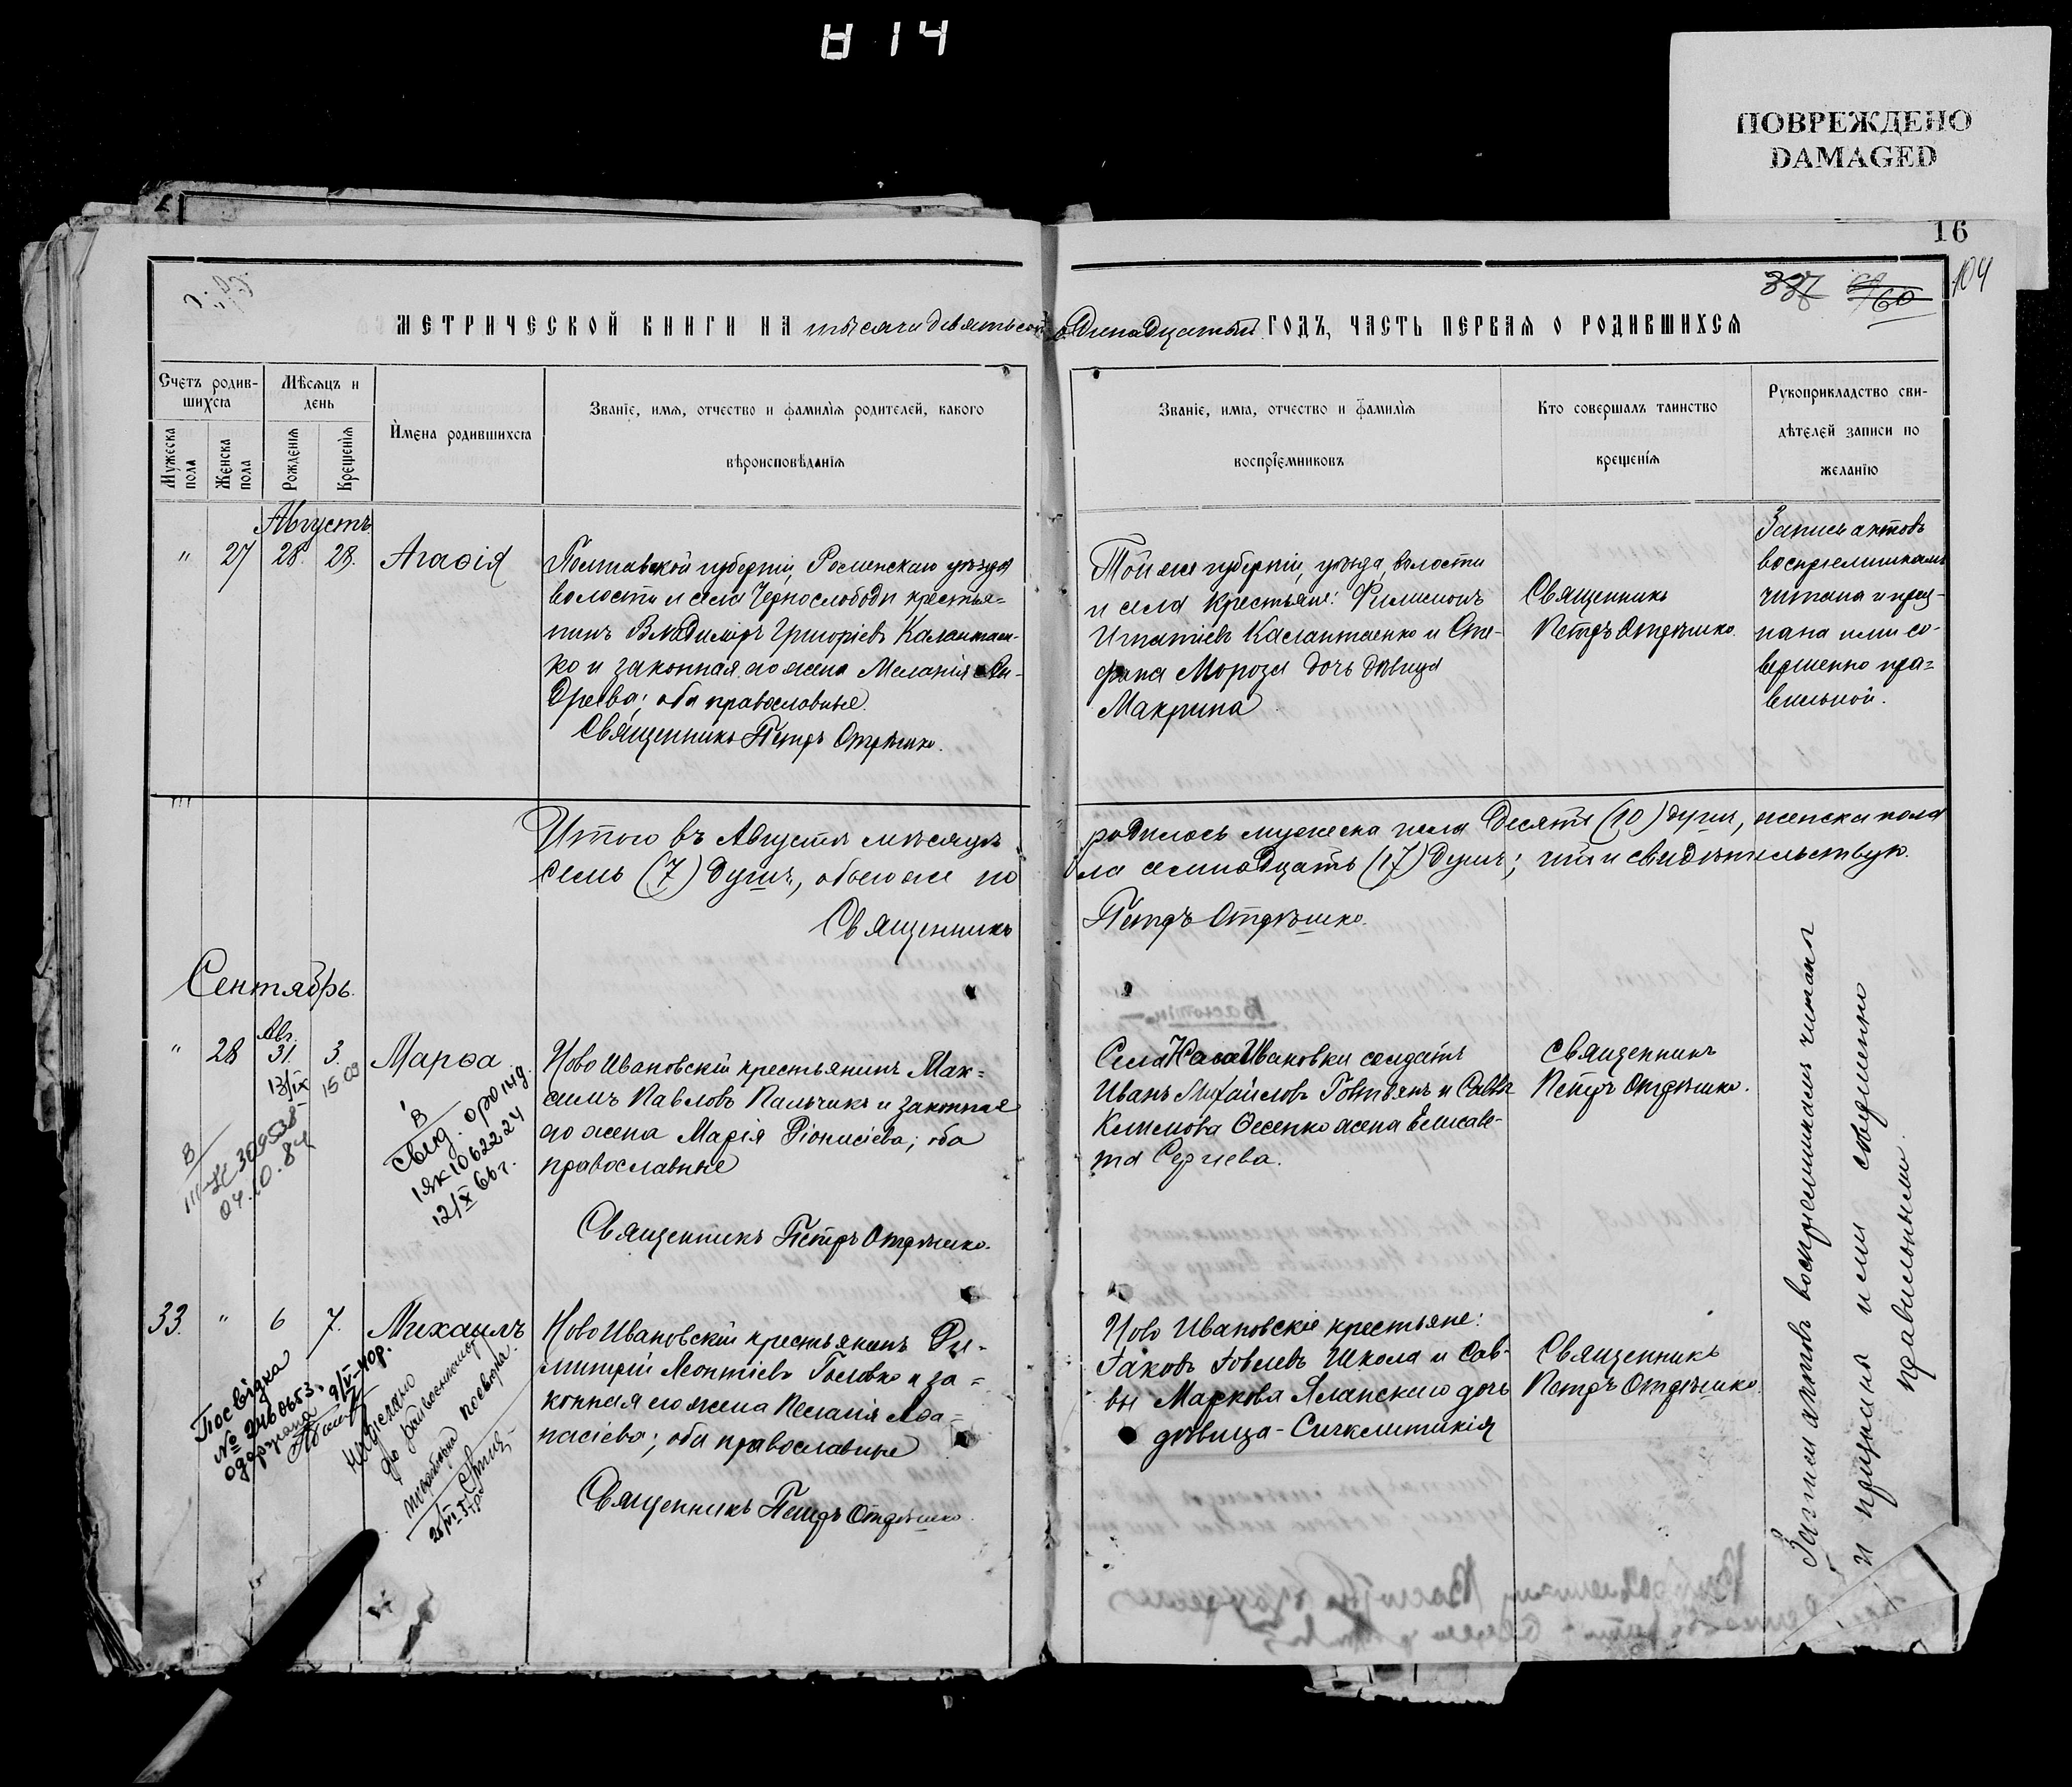 814
ПОВРЕЖДЕНО
DAMAGED
16
104
60
МЕТРИЧЕСКОЙ КНИГИ НА тысяча девятьсотъ одинадцатый ГОДЪ, ЧАСТЬ ПЕРВАЯ О РОДИВШИХСЯ
Счетъ родившихся
Мужеска пола
Женска пола
Мѣсяцъ и день
Рожденія
Крещенія
Имена родившихся
Званіе, имя, отчество и фамилія родителей, какого
вѣроисповѣданія
Званіе, имя, отчество и фамилія
воспріемниковъ
Кто совершалъ таинство
крещенія
Рукоприкладство сви-
дѣтелей записи по
желанію
Августъ
" 27 28. 29. Агафія
Полтавской губерніи, Роменскаго уѣзда
волости и села Чернослободы крестья=
нинъ Владиміръ Григоріевъ Калантаен-
ко и законная его жена Меланія Ан-
дреева; оба православные.
Священникъ Петръ Отрѣшко.
Той же губерніи, уѣзда, волости
и села крестьяне: Филимонъ
Игнатіевъ Калантаенко и Сте-
фана Мороза дочь дѣвица
Макрина
Священникъ
Петръ Отрѣшко.
Запись актовъ
воспріемникамъ
читана и приз-
нана ими со-
вершенно пра=
вильной.
Итого въ Августѣ мѣсяцѣ родилось мужеска пола десять (10) душъ, женска пола
семь (7) душъ, обоего же по ла семнадцать (17) душъ; что и свидѣтельствую.
Священникъ Петръ Отрѣшко.
Сентябрь.
" 28 Авг. 31. 3. Марѳа
13/IX 15.09
В
III-УС 309538
04.10.84
В
свид. о рожд.
IЯК 1062224
12/X 66 г.
Ново Ивановскій крестьянинъ Мак=
симъ Павловъ Пальчикъ и законная
его жена Марія Діонисіева; оба
православные
Священникъ Петръ Отрѣшко.
Села Ивановки солдатъ
Иванъ Михайловъ Говтвянъ и Саввы
Климова Фесенко жена Елисаве-
та Сергіева.
Священникъ
Петръ Отрѣшко.
33. " 6 7. Михаилъ
Посвідка
№ 2460653
одержана 9/IV-40р.
Надіслано
до райвоенкомат
повістка
25/VI 51р.
Ново Ивановскій крестьянинъ Ди-
митрій Леонтіевъ Головко и за=
конная его жена Пелагія Аѳа=
насіева; оба православные
Священникъ Петръ Отрѣшко.
Ново Ивановскіе крестьяне:
Іаковъ Іовлевъ Школа и Сав-
вы Маркова Яланскаго дочь
дѣвица - Сигклитикія
Священникъ
Петръ Отрѣшко.
Записи актовъ воспріемникамъ читаны
и признаны ими совершенно
правильными.